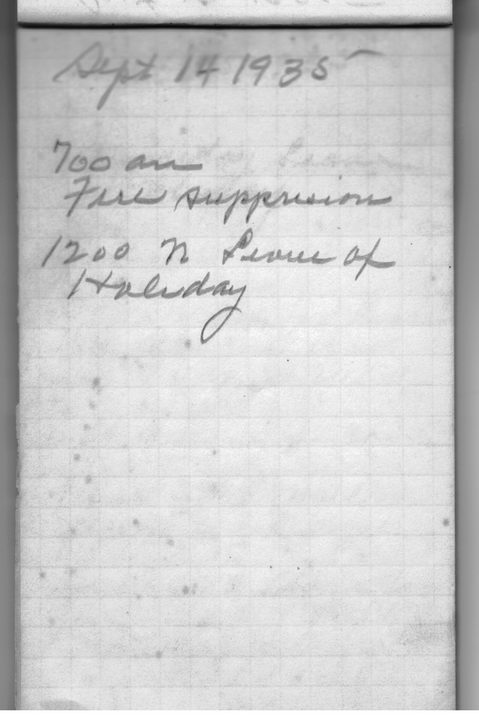 Sept 14 1935
700 am
Fire suppresion
1200 N Leave of
Holiday